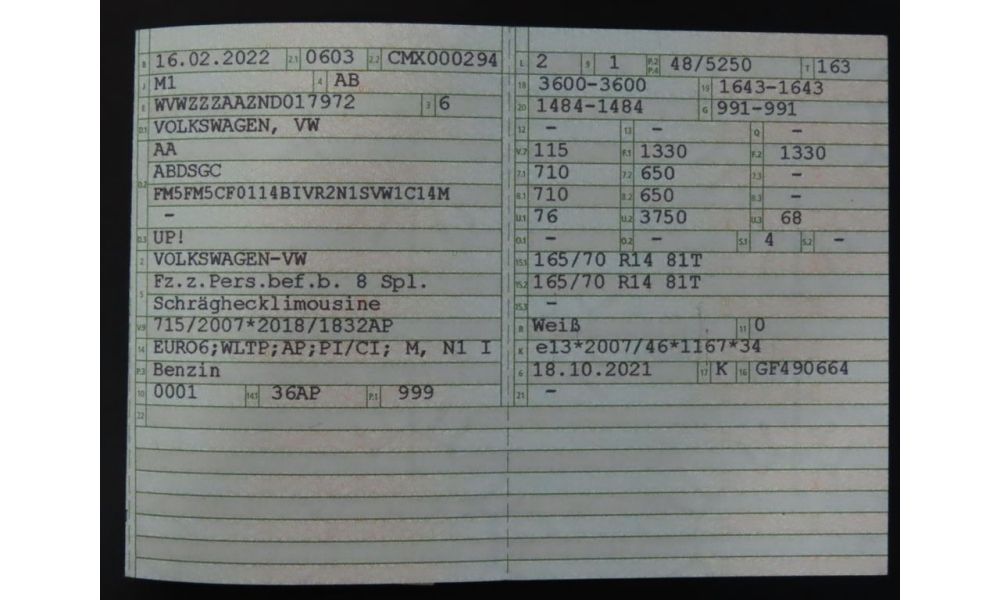 B 16.02.2022 2.1 0603 2.2 CMX000294
J M1 4 AB
E WVWZZZAAZND017972 3 6
D.1 VOLKSWAGEN, VW
AA
D.2 ABDSGC
FM5FM5CF0114BIVR2N1SVW1C14M
-
D.3 UP!
2 VOLKSWAGEN-VW
5 Fz.z.Pers.bef.b. 8 Spl.
Schräghecklimousine
V.9 715/2007*2018/1832AP
14 EURO6;WLTP;AP;PI/CI; M, N1 I
P.3 Benzin
10 0001 14.1 36AP P.1 999
22
L 2 9 1 P.2 P.4 48/5250 T 163
18 3600-3600 19 1643-1643
20 1484-1484 G 991-991
12 - 13 - Q -
V.7 115 F.1 1330 F.2 1330
7.1 710 7.2 650 7.3 -
8.1 710 8.2 650 8.3 -
U.1 76 U.2 3750 U.3 68
O.1 - O.2 - S.1 4 S.2 -
15.1 165/70 R14 81T
15.2 165/70 R14 81T
15.3 -
R Weiß 11 0
K e13*2007/46*1167*34
6 18.10.2021 17 K 16 GF490664
21 -